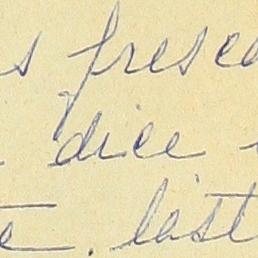 s fresc
dice
e. last